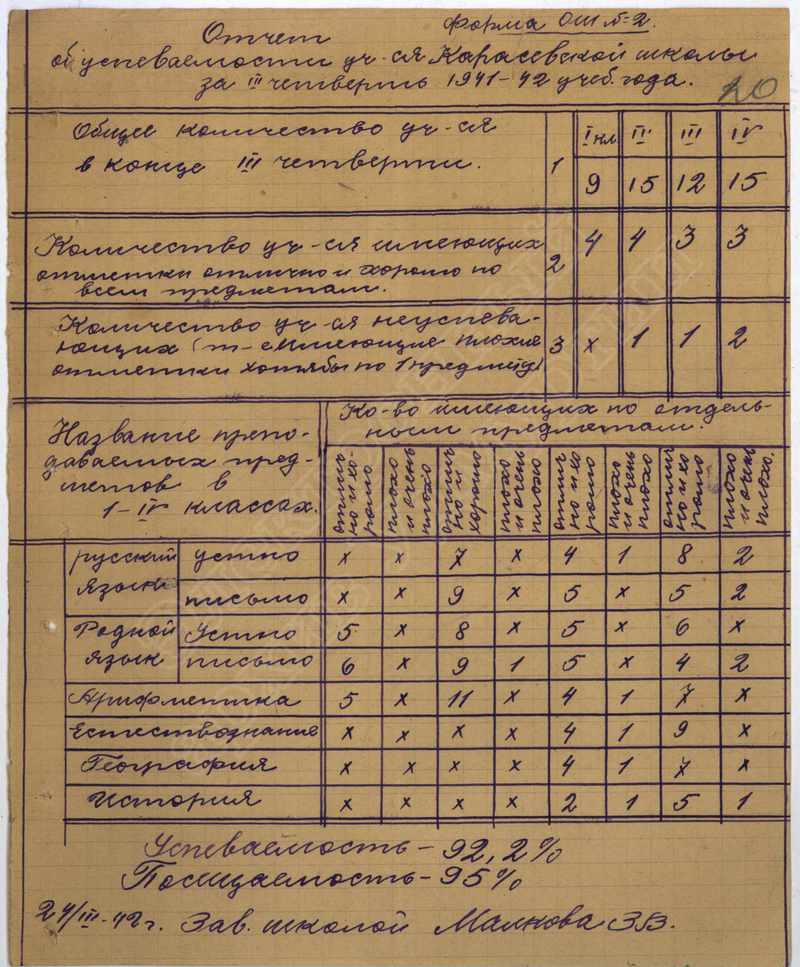 Форма ОШ №-2.
Отчет
об успеваемости уч-ся Карасевской школы
за III четверть 1941-42 учеб. года.
20
Общее количество уч-ся
в конце III четверти.
1
I кл II III IV
9 15 12 15
Количество уч-ся имеющих
отметки отлично и хорошо по
всем предметам.
2 4 4 3 3
Количество уч-ся неуспева-
ющих (т-е имеющие плохие
отметки хотябы по 1 предмету)
3 х 1 1 2
Название препо-
даваемых пред-
метов в
1-IV классах.
Ко-во имеющих по отдель-
ным предметам.
отлич-
но и хо-
рошо
плохо
и очень
плохо
отлич
но и
хорошо
плохо
и очень
плохо
отлич
но и хо
рошо
плохо
и очень
плохо
отлич
но и хо
рошо
плохо
и очень
плохо.
русский язык устно х х 7 х 4 1 8 2
письмо х х 9 х 5 х 5 2
Родной язык Устно 5 х 8 х 5 х 6 х
письмо 6 х 9 1 5 х 4 2
Арифметика 5 х 11 х 4 1 7 х
Естествознание х х х х 4 1 9 х
География х х х х 4 1 7 х
История х х х х 2 1 5 1
Успеваемость - 92,2%
Посещаемость - 95%
24/III-42 г. Зав. школой Малкова ЗВ.